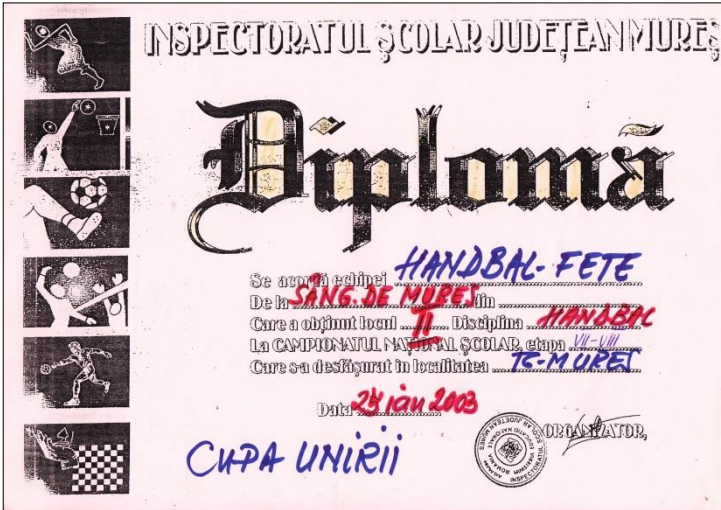 INSPECTORATUL ȘCOLAR JUDEȚEAN MUREȘ
Diplomă
Se acordă echipei HANDBAL-FETE
De la SÂNG. DE MUREȘ din
Care a obținut locul II Disciplina HANDBAL
La CAMPIONATUL NAȚIONAL ȘCOLAR, etapa VII-VIII
Care s-a desfășurat în localitatea TG-MUREȘ
Data 24 ian 2003
ORGANIZATOR,
CUPA UNIRII